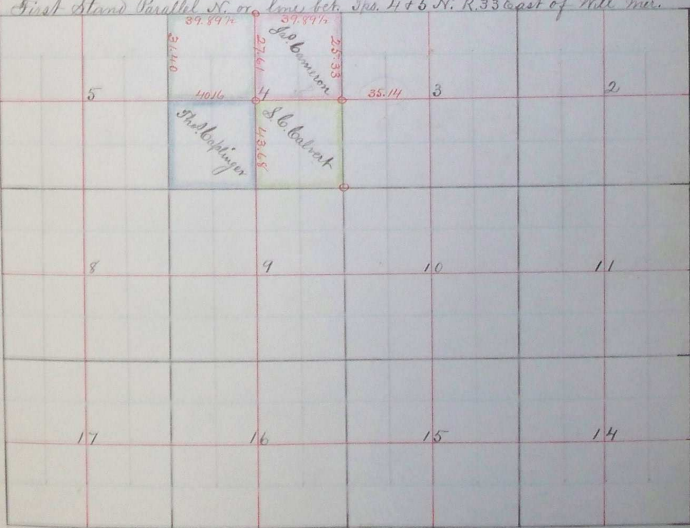 First Stand Parallel N. or line bet. Tps. 4 & 5 N. R. 33 East of Will Mer.
39.89½ 39.89½
31.40 27.61 Jas. Cameron 25.33
5 4 35.14 3 2
40.16
Thos Caplinger 43.68 S. C. Calvert
8 9 10 11
17 16 15 14